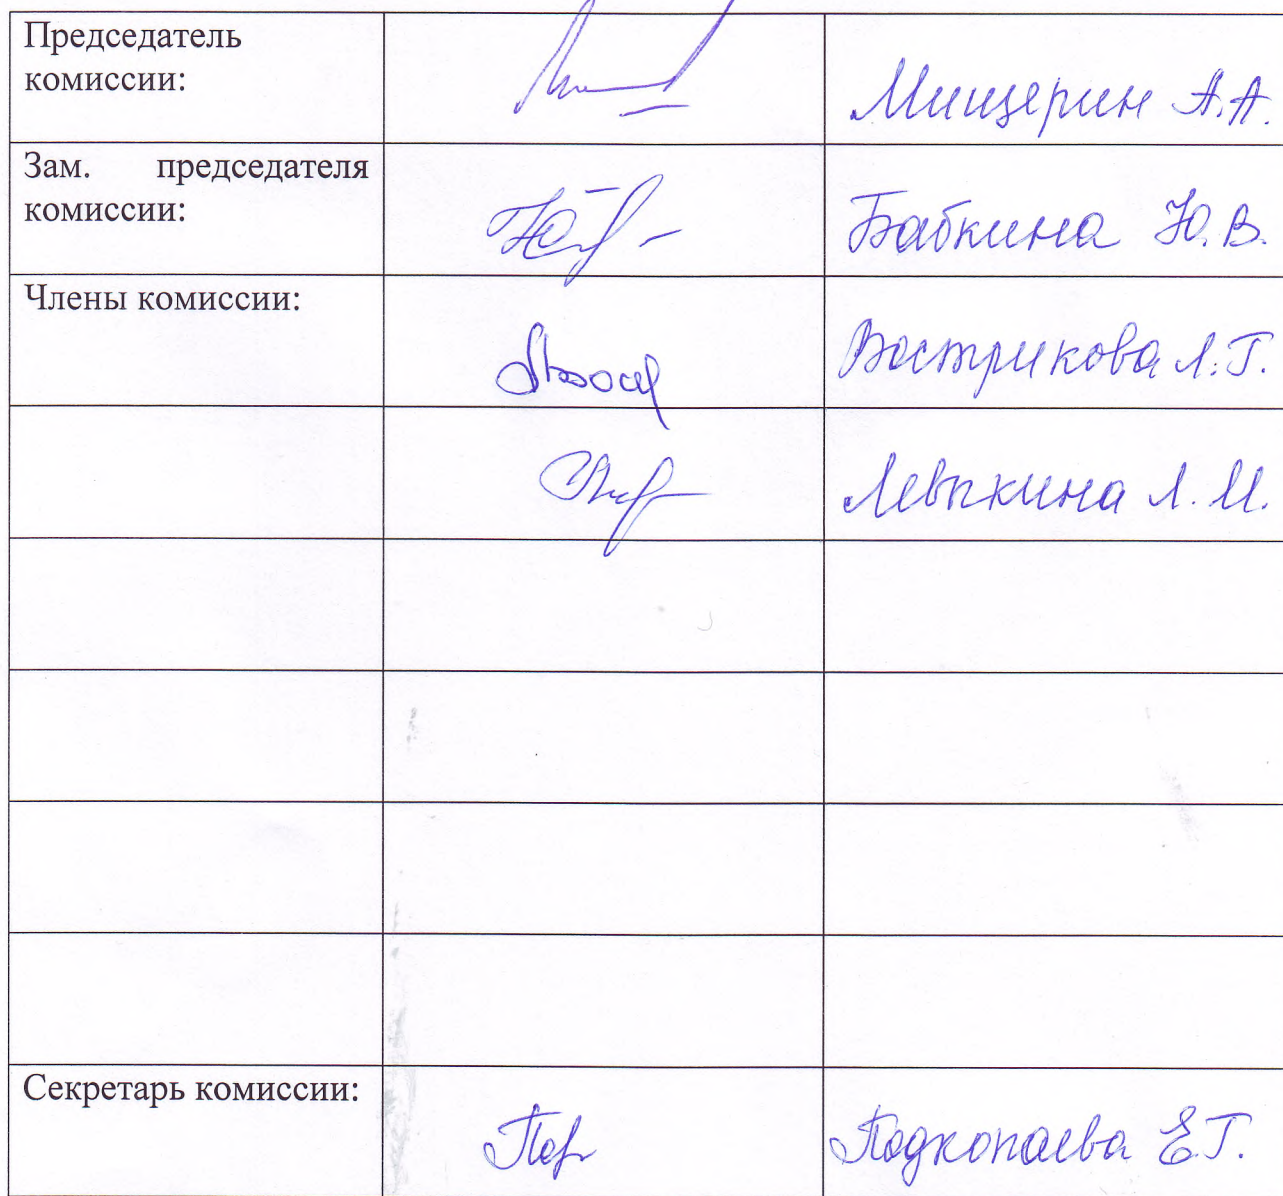 Председатель
комиссии:
Мищерин А.А.
Зам. председателя
комиссии:
Бабкина Ю.В.
Члены комиссии:
Вострикова Л.Г.
Левыкина Л.И.
Секретарь комиссии:
Подкопаева Е.Г.